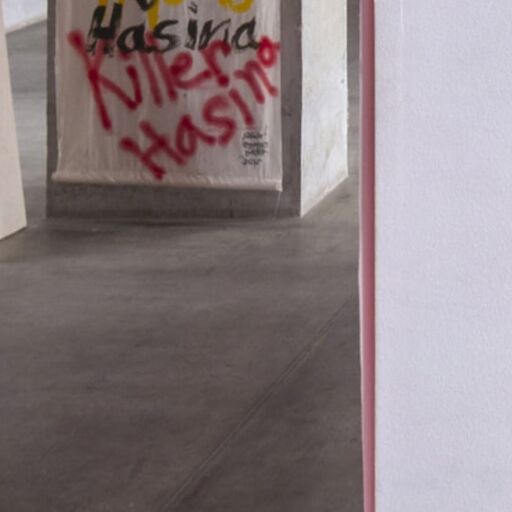 Hasina
Killer
Hasina